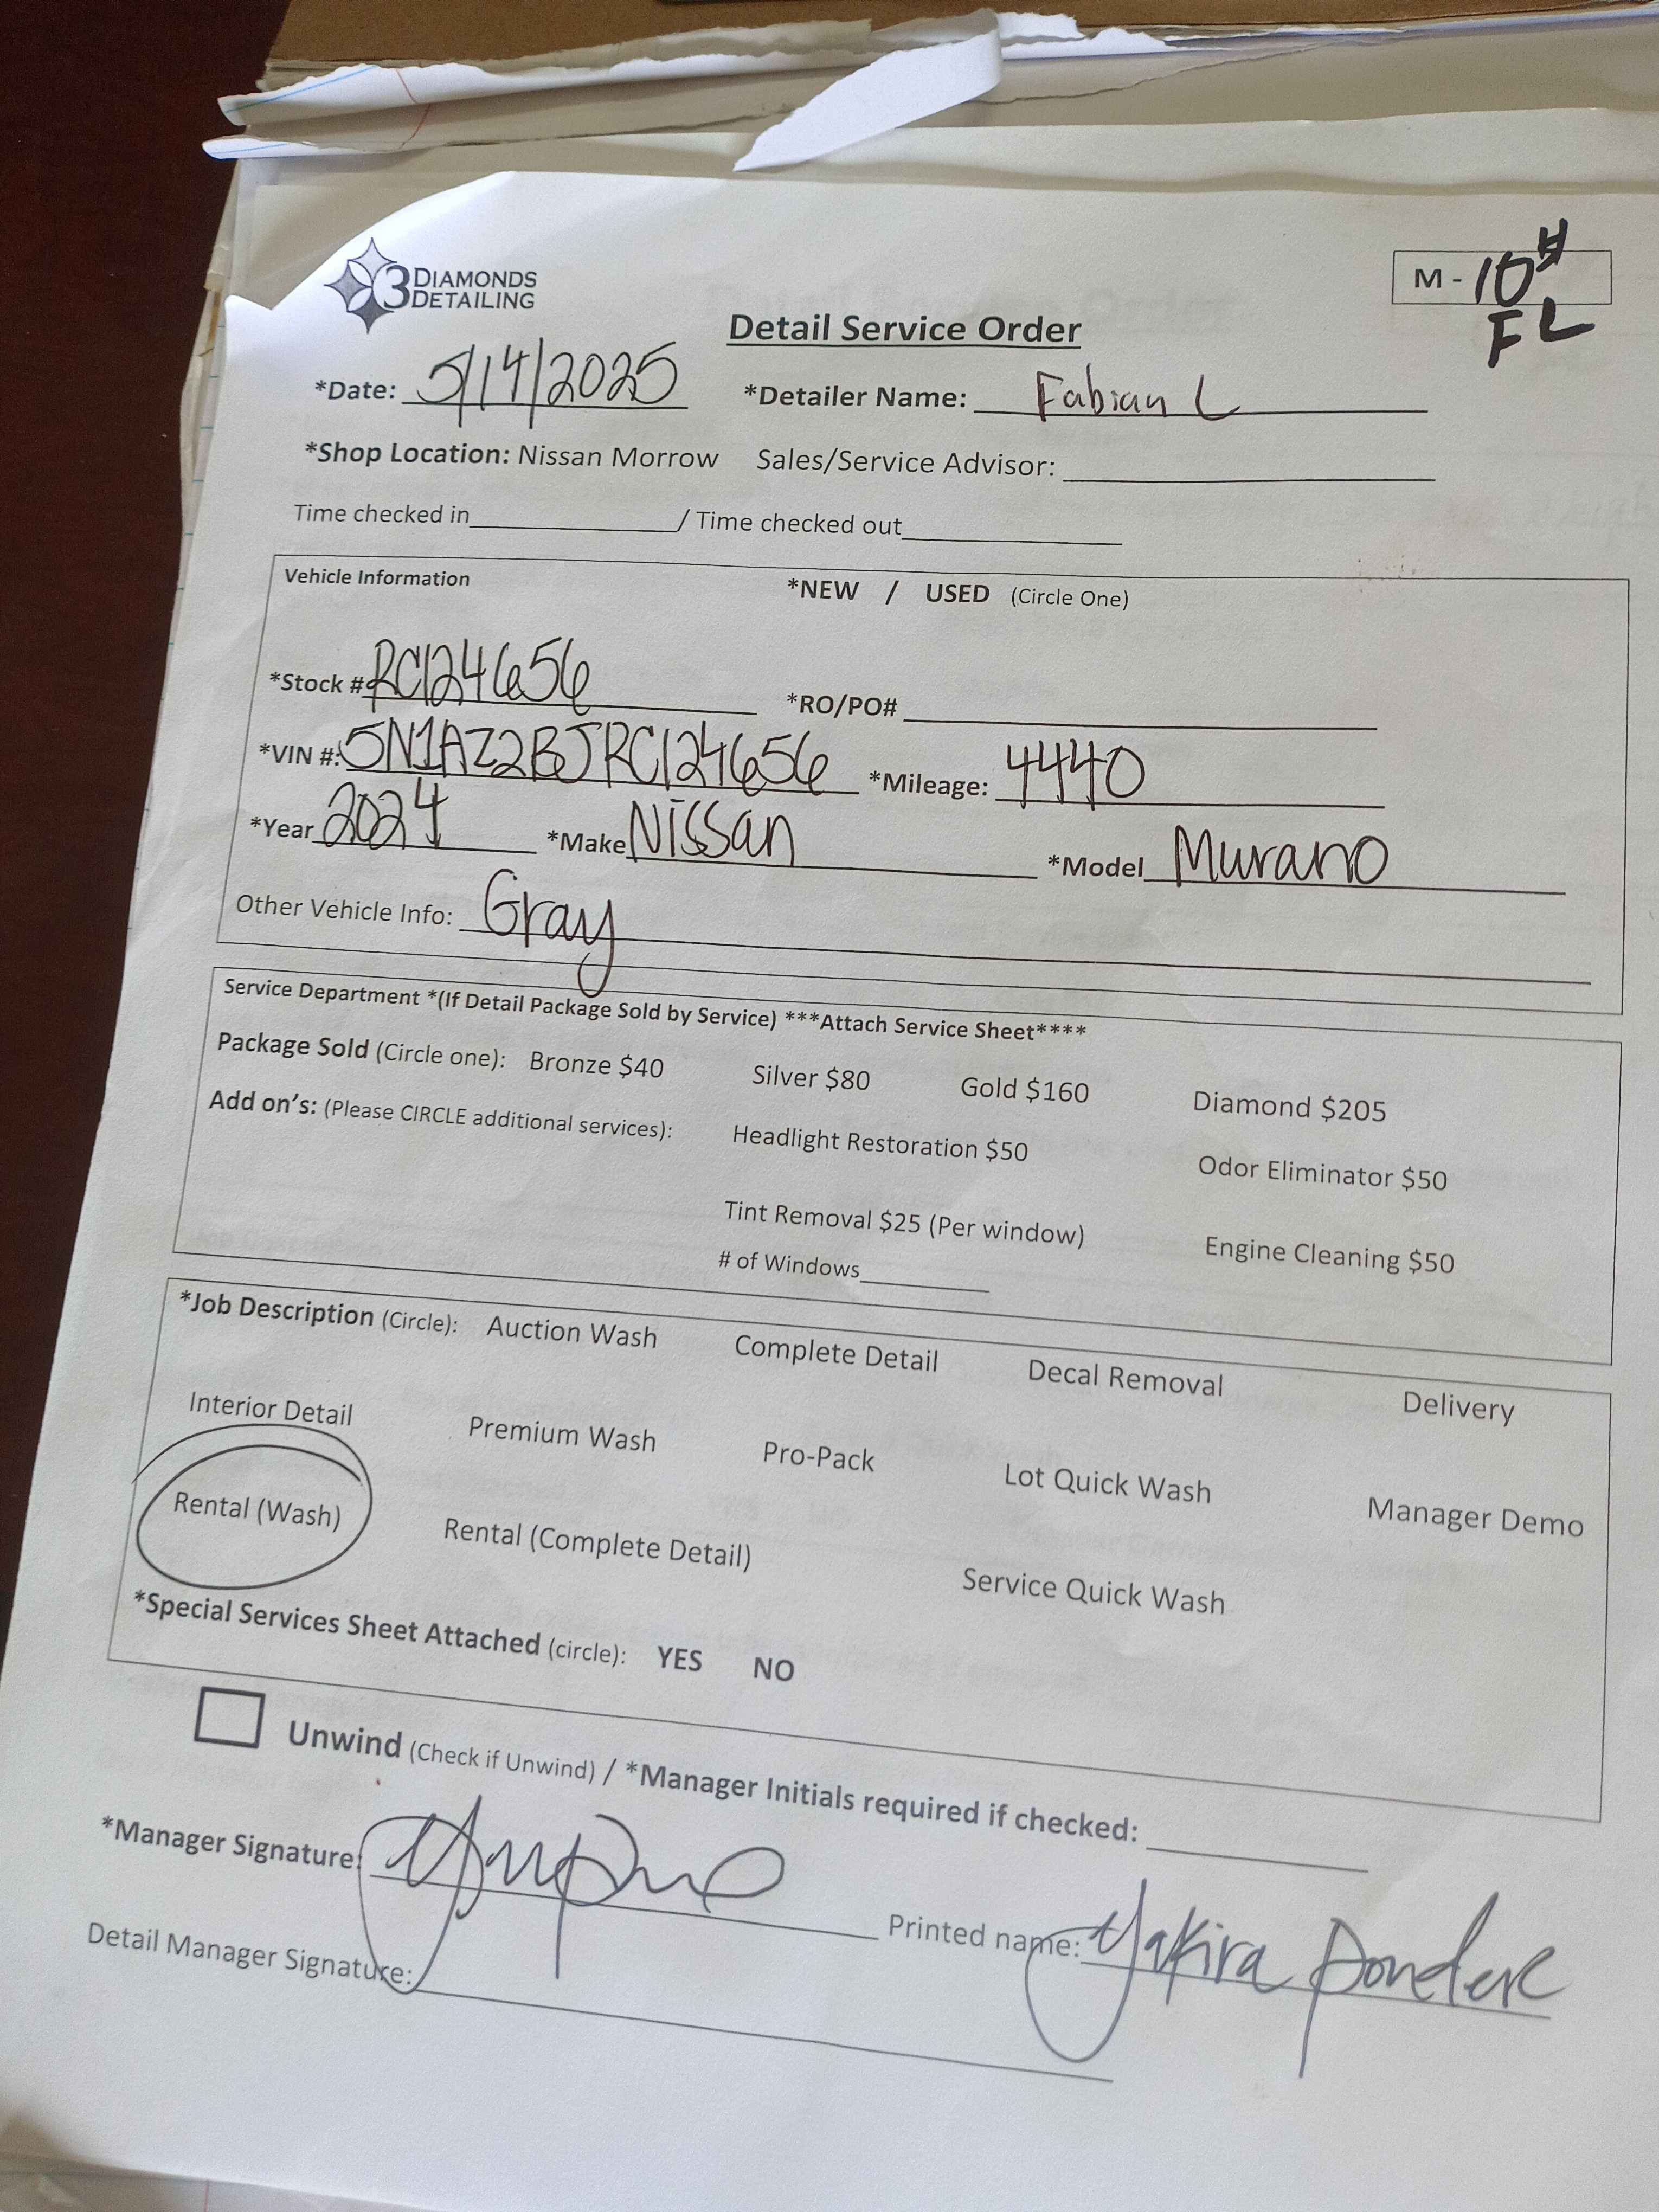 3 DIAMONDS DETAILING
M - 10#
FL
Detail Service Order
*Date: 5/14/2025 *Detailer Name: Fabian L
*Shop Location: Nissan Morrow Sales/Service Advisor:
Time checked in / Time checked out
Vehicle Information *NEW / USED (Circle One)
*Stock # RC124656 *RO/PO#
*VIN #: 5N1AZ2BJRC124656 *Mileage: 4440
*Year 2024 *Make Nissan *Model Murano
Other Vehicle Info: Gray
Service Department *(If Detail Package Sold by Service) ***Attach Service Sheet****
Package Sold (Circle one): Bronze $40 Silver $80 Gold $160 Diamond $205
Add on's: (Please CIRCLE additional services): Headlight Restoration $50 Odor Eliminator $50
Tint Removal $25 (Per window) Engine Cleaning $50
# of Windows
*Job Description (Circle): Auction Wash Complete Detail Decal Removal Delivery
Interior Detail Premium Wash Pro-Pack Lot Quick Wash Manager Demo
Rental (Wash) Rental (Complete Detail) Service Quick Wash
*Special Services Sheet Attached (circle): YES NO
Unwind (Check if Unwind) / *Manager Initials required if checked:
*Manager Signature: Printed name: Yakira Ponder
Detail Manager Signature: